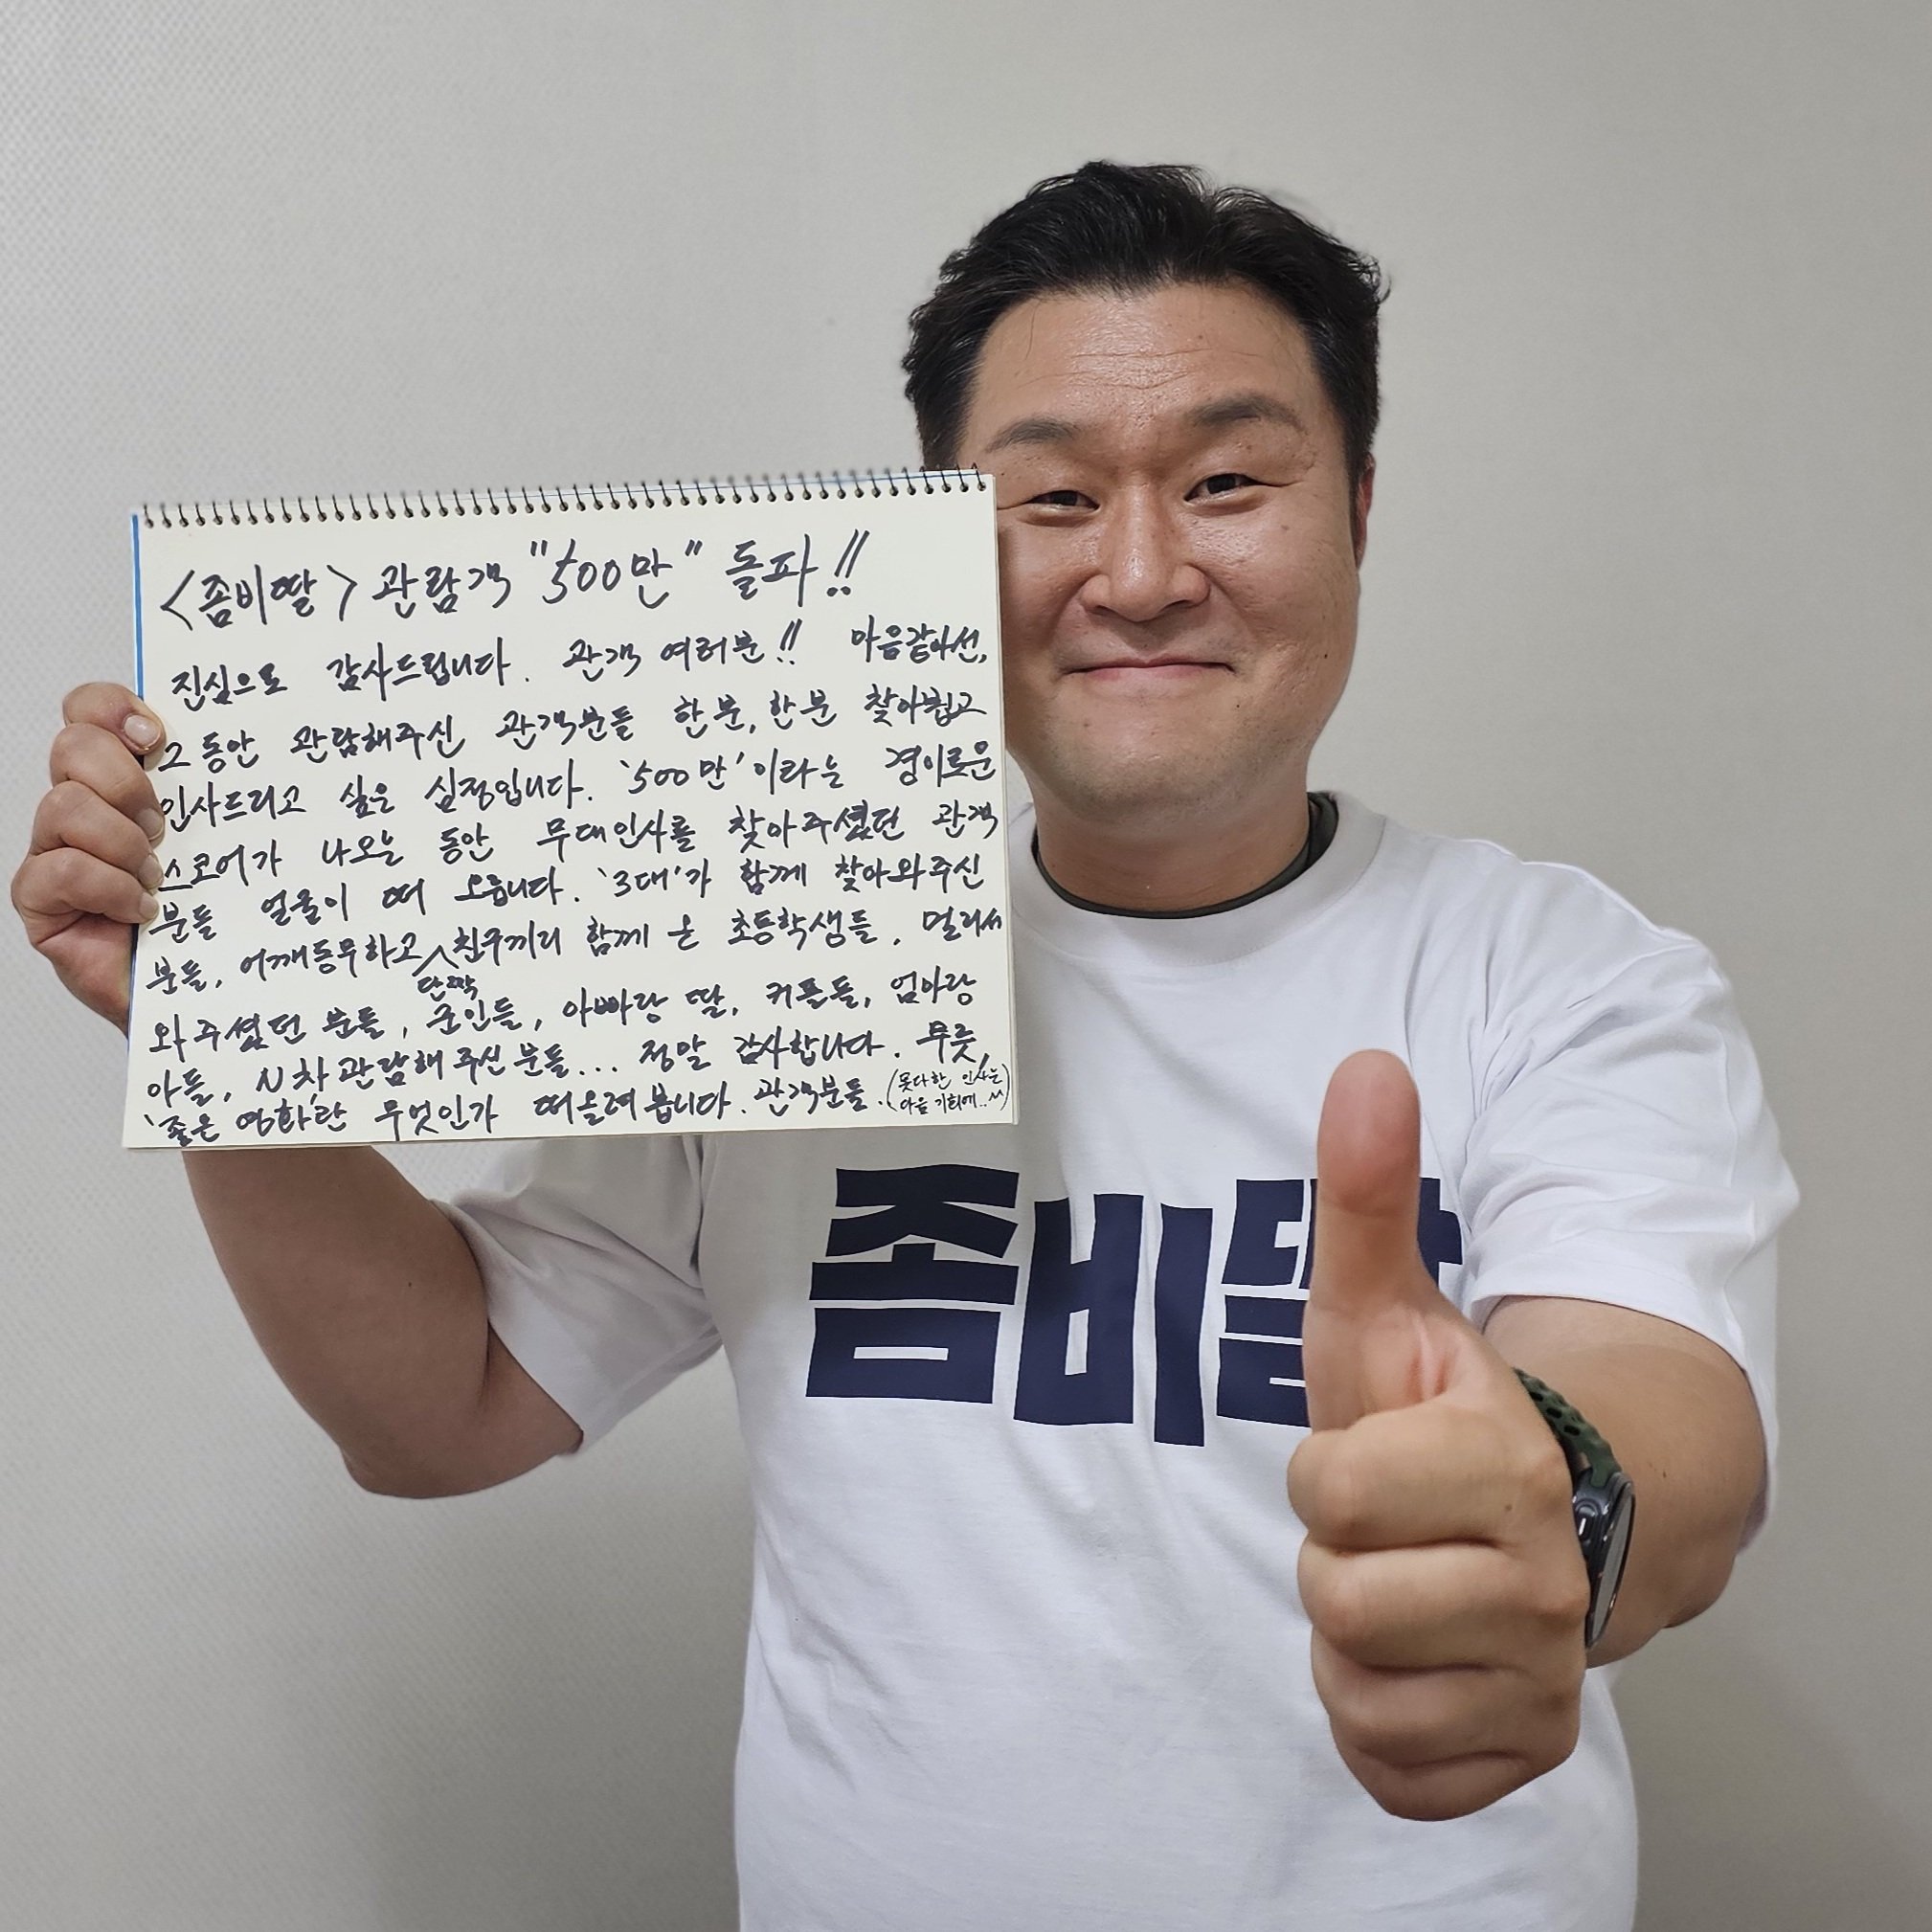 <좀비딸> 관람객 "500만" 돌파!!
진심으로 감사드립니다. 관객 여러분!! 마음같아선,
그동안 관람해주신 관객분들 한분, 한분 찾아뵙고
인사드리고 싶은 심정입니다. '500만'이라는 경이로운
스코어가 나오는 동안 무대인사를 찾아주셨던 관객
분들 얼굴이 떠 오릅니다. '3대'가 함께 찾아와주신
분들, 어깨동무하고 친구끼리 함께 온 초등학생들, 멀리서
단짝
와주셨던 분들, 군인들, 아빠랑 딸, 커플들, 엄마랑
아들, N차 관람해 주신 분들... 정말 감사합니다. 무릇,
'좋은 영화'란 무엇인가 떠올려 봅니다. 관객분들.
(못다한 인사는
다음 기회에..^^)
좀비딸